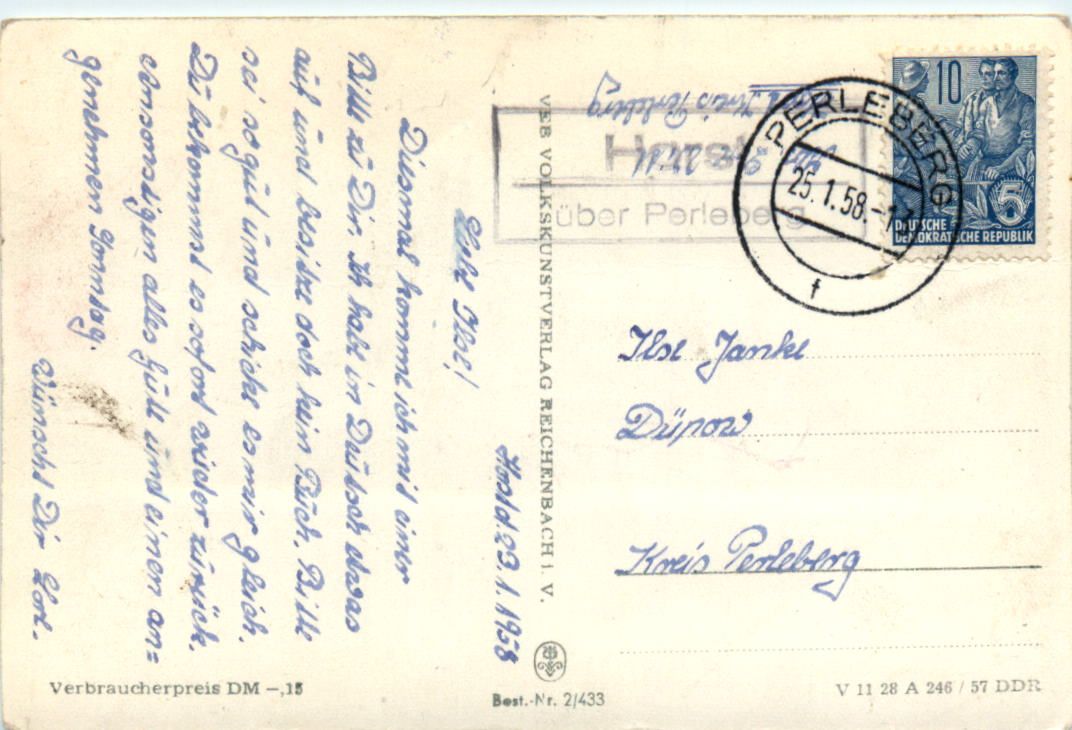 Horst, d. 23.1.1958
Liebe Ilse!
Diesmal komme ich mit einer
Bitte zu Dir. Ich habe in Deutsch etwas
auf und besitze doch kein Buch. Bitte
sei so gut und schicke es mir gleich.
Du bekommst es sofort wieder zurück.
ansonstigen alles Gute und einen an=
genehmen Sonntag.
Wünscht Dir Lore.
VEB VOLKSKUNSTVERLAG REICHENBACH i. V.
Horst
über Perleberg
Kreis Perleberg
PERLEBERG
25.1.58.-17
f
10
5
DEUTSCHE
DEMOKRATISCHE REPUBLIK
Ilse Janke
Düpow
Kreis Perleberg
Verbraucherpreis DM -,15
Best.-Nr. 2/433
V 11 28 A 246 / 57 DDR